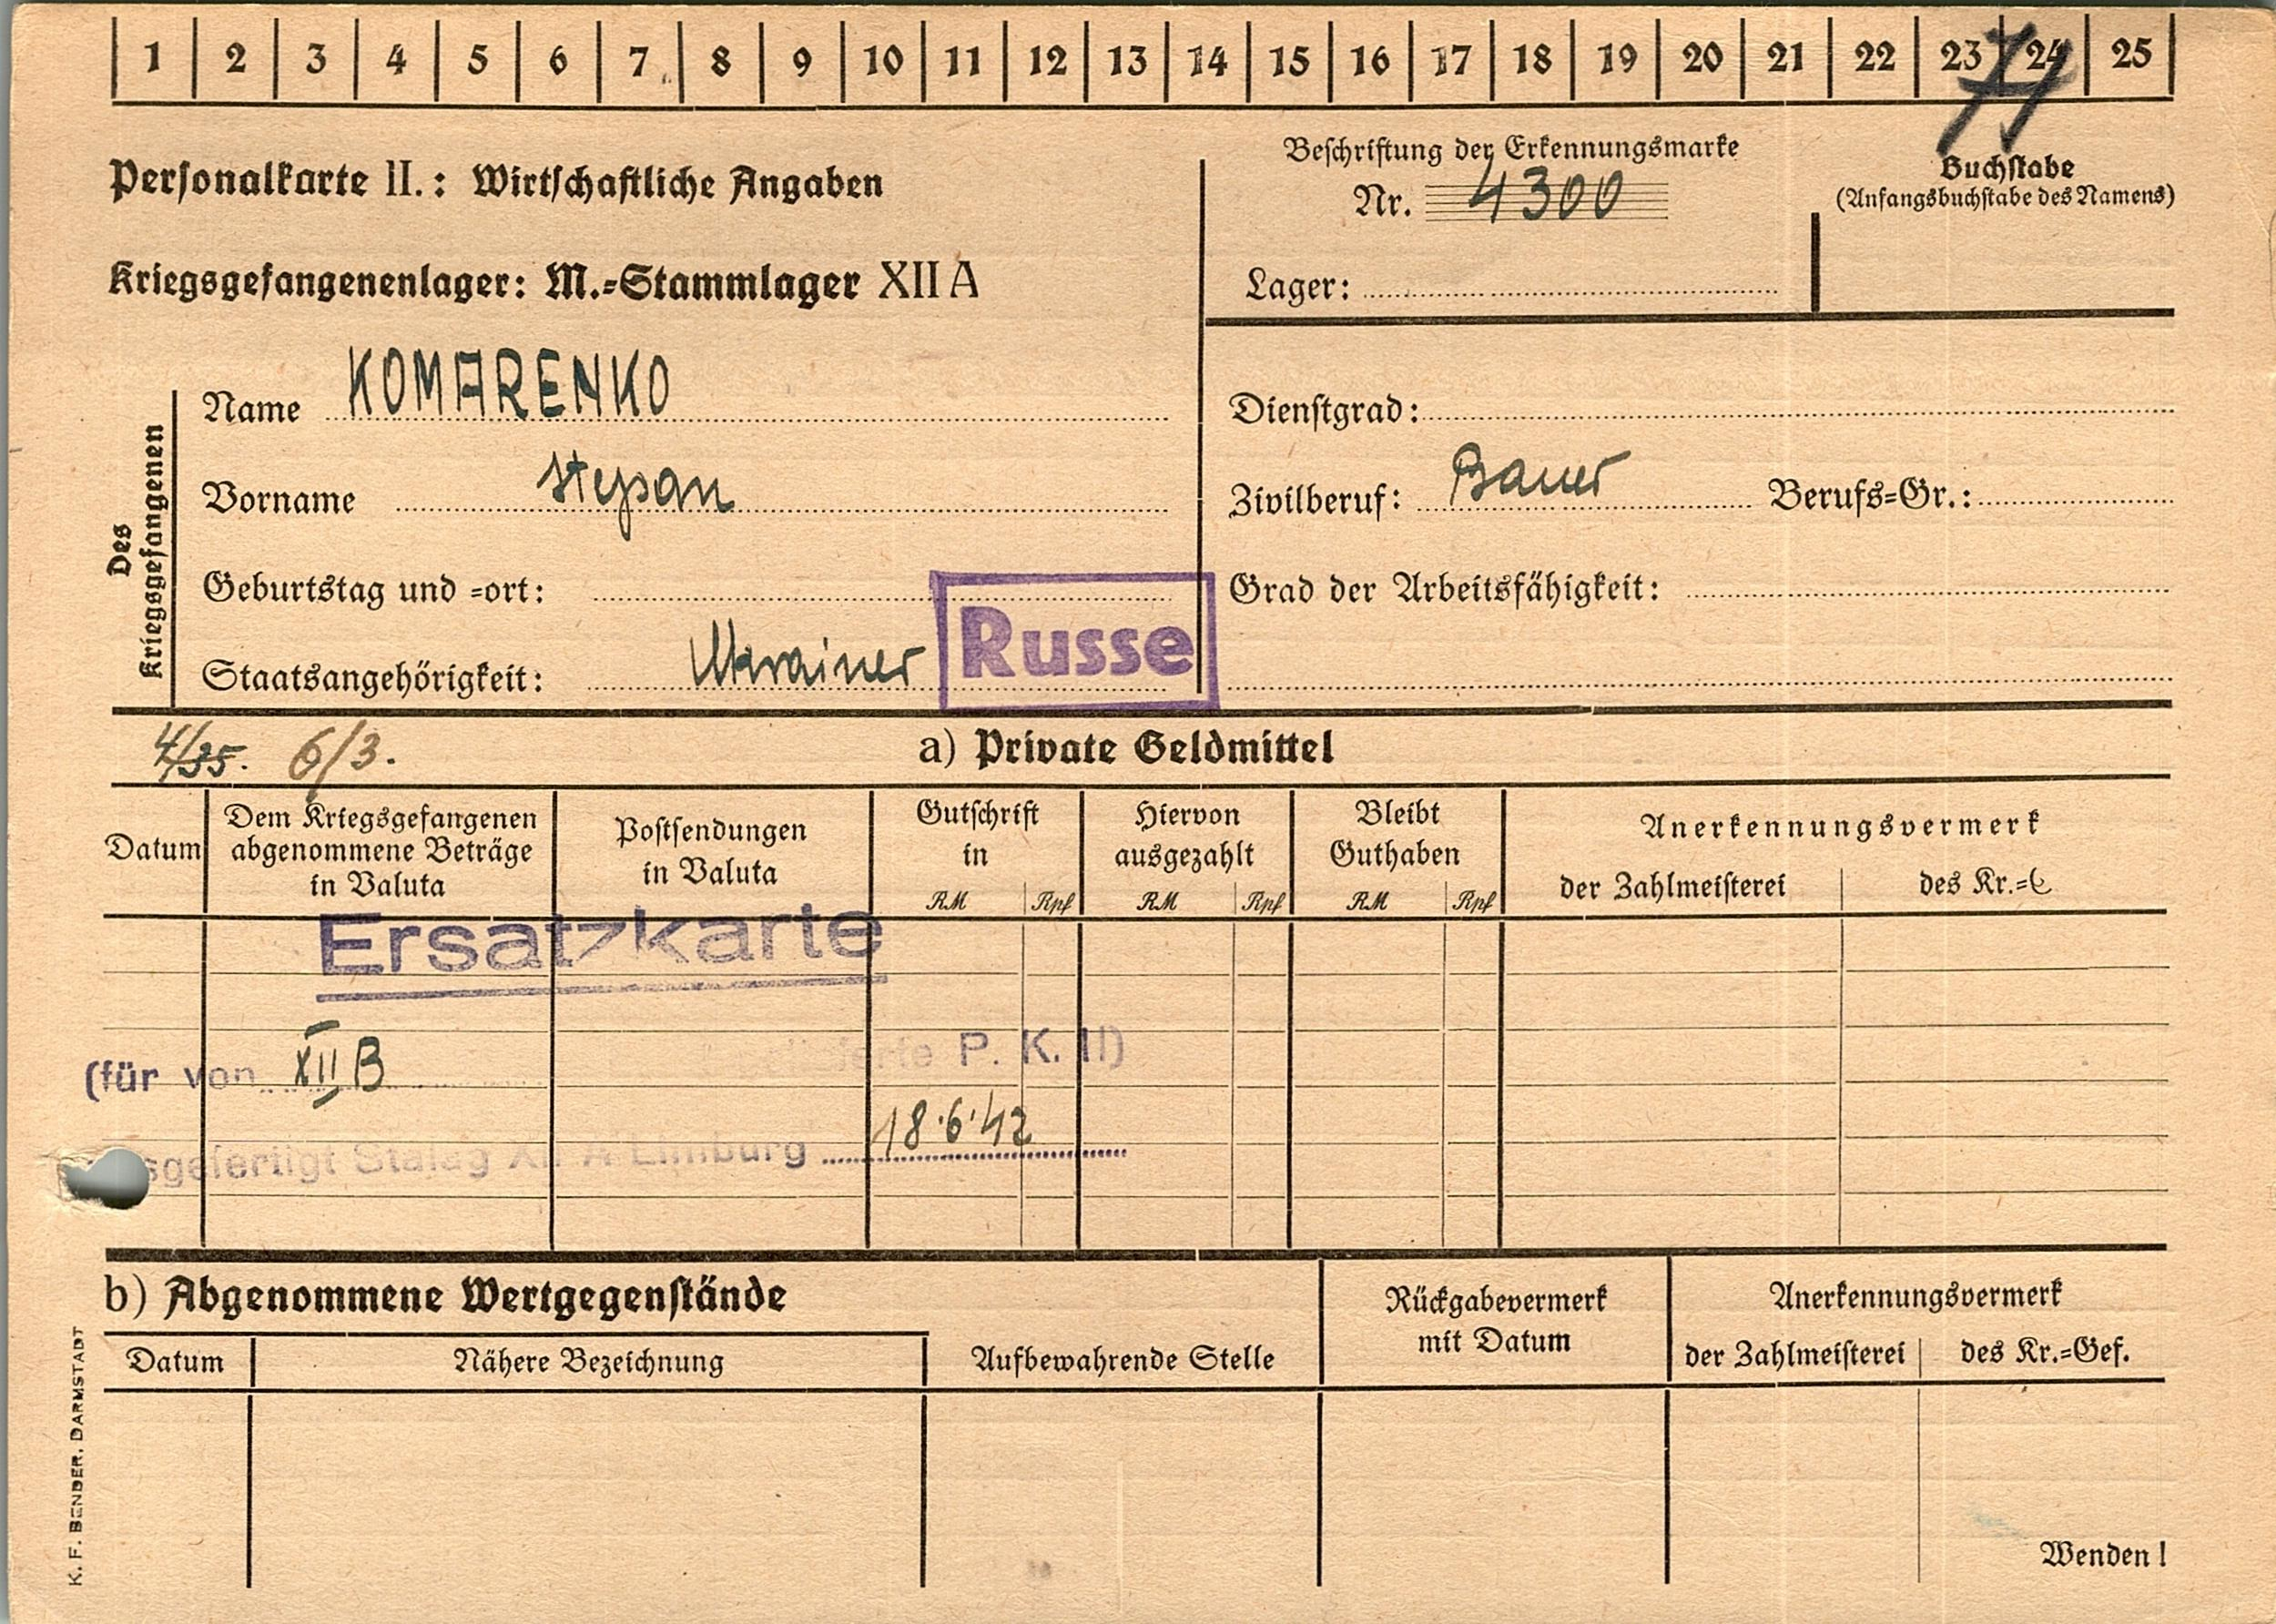 1 2 3 4 5 6 7 8 9 10 11 12 13 14 15 16 17 18 19 20 21 22 23 24 25
Personalkarte II.: Wirtschaftliche Angaben
Beschriftung der Erkennungsmarke
Nr. 4300
Buchstabe
(Anfangsbuchstabe des Namens)
Kriegsgefangenenlager: M.-Stammlager XII A
Lager:
Des Kriegsgefangenen
Name KOMARENKO
Dienstgrad:
Vorname Stepan
Zivilberuf: Bauer Berufs-Gr.:
Geburtstag und -ort:
Grad der Arbeitsfähigkeit:
Staatsangehörigkeit: Ukrainer Russe
4/35. 6/3.
a) Private Geldmittel
Datum
Dem Kriegsgefangenen
abgenommene Beträge
in Valuta
Postsendungen
in Valuta
Gutschrift
in
RM Rpf
Hiervon
ausgezahlt
RM Rpf
Bleibt
Guthaben
RM Rpf
Anerkennungsvermerk
der Zahlmeisterei des Kr.-G
Ersatzkarte
(für von XII B P. K. II)
18.6.42
sgefertigt Stalag XII A Limburg
b) Abgenommene Wertgegenstände
Datum
Nähere Bezeichnung
Aufbewahrende Stelle
Rückgabevermerk
mit Datum
Anerkennungsvermerk
der Zahlmeisterei des Kr.-Gef.
K. F. BENDER, DARMSTADT
Wenden!